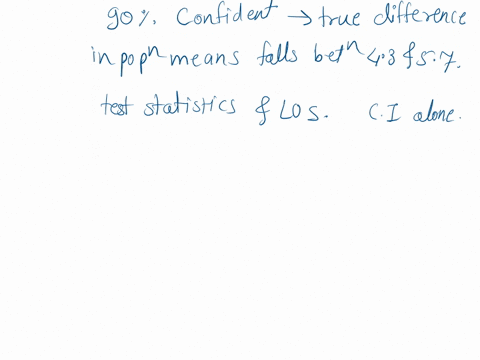 90%. Confident → true difference
in popⁿ means falls betⁿ 4.3 & 5.7.
test statistics & LOS. C.I alone.